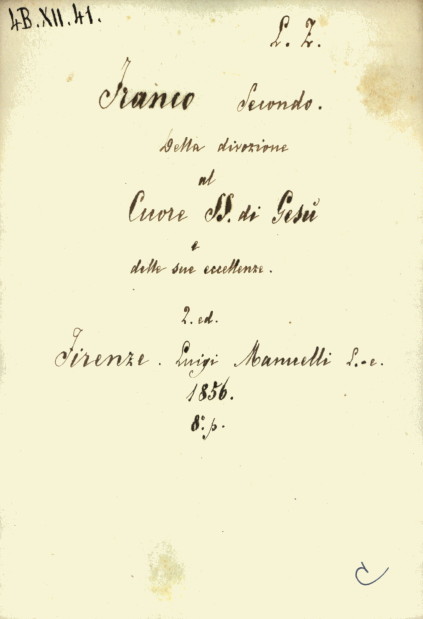 4B.XII.41.
L. Z.
Franco Secondo.
Della divozione
al
Cuore SS. di Gesù
e
delle sue eccellenze.
2. ed.
Firenze. Luigi Manuelli L.-e.
1856.
8.° p.
C